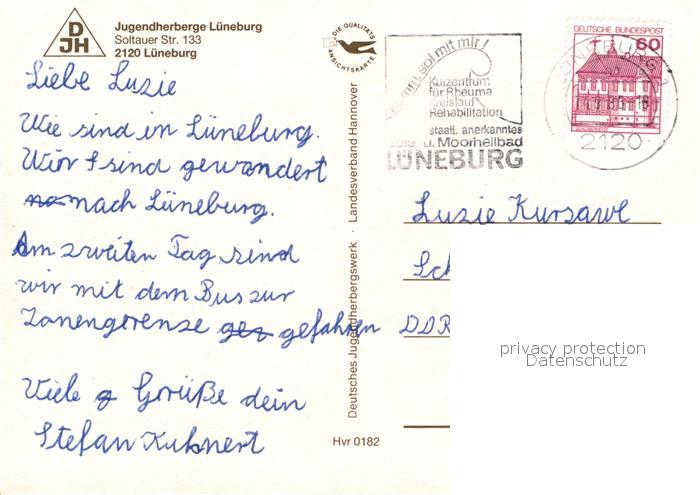 DJH
Jugendherberge Lüneburg
Soltauer Str. 133
2120 Lüneburg
DIE QUALITÄTS
ANSICHTSKARTE
Liebe Luzie
Wie sind in Lüneburg.
Wir sind gewandert
nach Lüneburg.
Am zweiten Tag sind
wir mit dem Bus zur
Zonengrenze gefahren
Viele Grüße dein
Stefan Kuhnert
Deutsches Jugendherbergswerk · Landesverband Hannover
Hvr 0182
sol mit mir!
Kurzentrum
für Rheuma
Kreislauf
Rehabilitation
staatl. anerkanntes
Sole- u. Moorheilbad
LÜNEBURG
DEUTSCHE BUNDESPOST
60
2120
Luzie Kursawe
Sch
DDR
privacy protection
Datenschutz